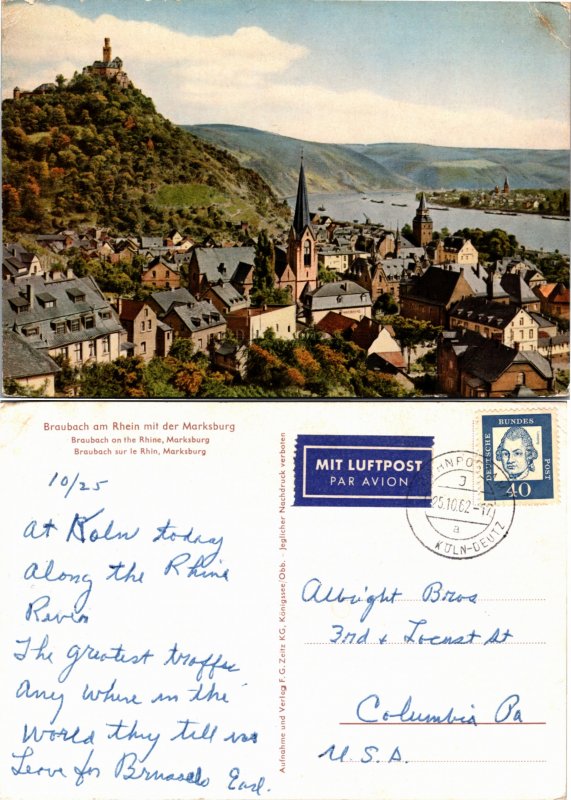 Braubach am Rhein mit der Marksburg
Braubach on the Rhine, Marksburg
Braubach sur le Rhin, Marksburg
10/25
At Koln today
along the Rhine
River
The greatest traffic
any where in the
World they tell us
Leave for Brussels
Aufnahme und Verlag F. G. Zeitz KG, Königssee/Obb. - Jeglicher Nachdruck verboten
MIT LUFTPOST
PAR AVION
DEUTSCHE BUNDESPOST
40
25.10.62-17
a
KÖLN-DEUTZ
Albright Bros
3rd & Locust St
Columbia Pa
U.S.A.